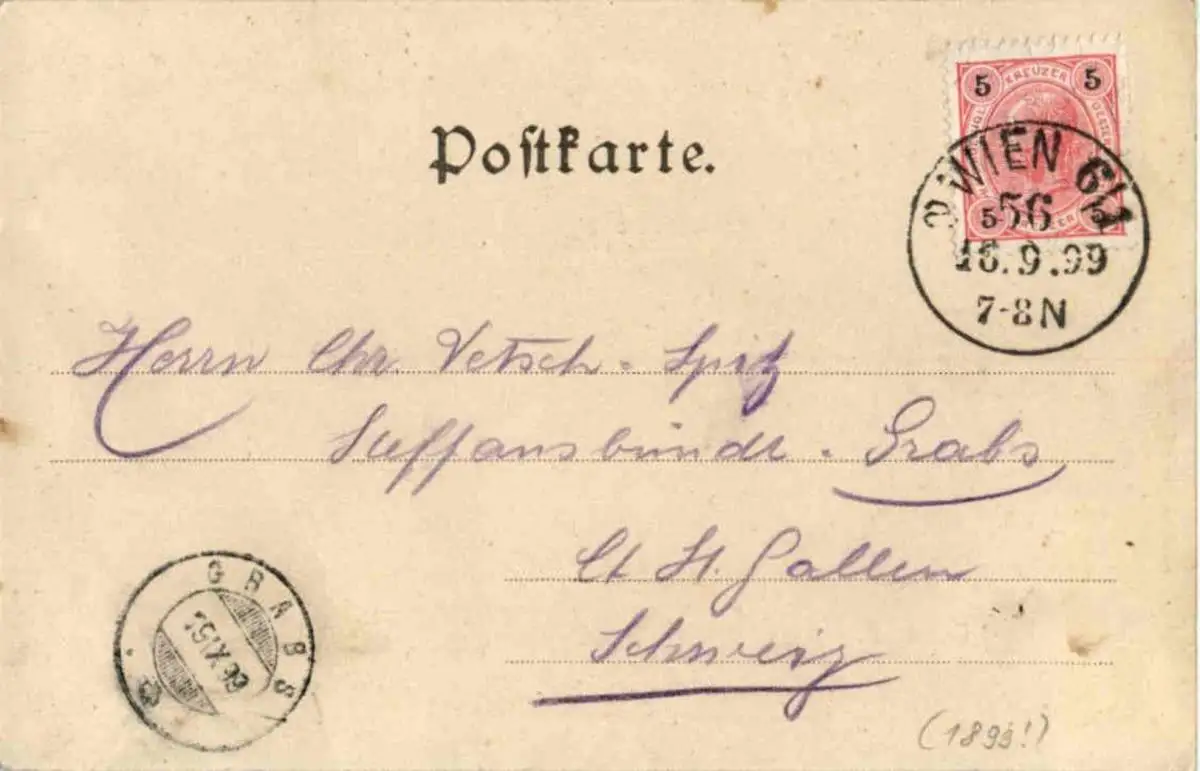 Postkarte.
5 KREUZER 5
WIEN 6/1
56
5 5
16.9.99
7-8N
Herrn Chr. Vetsch-Spitz
Grabs
Ct St. Gallen
Schweiz
GRABS
IX 99
(1899!)